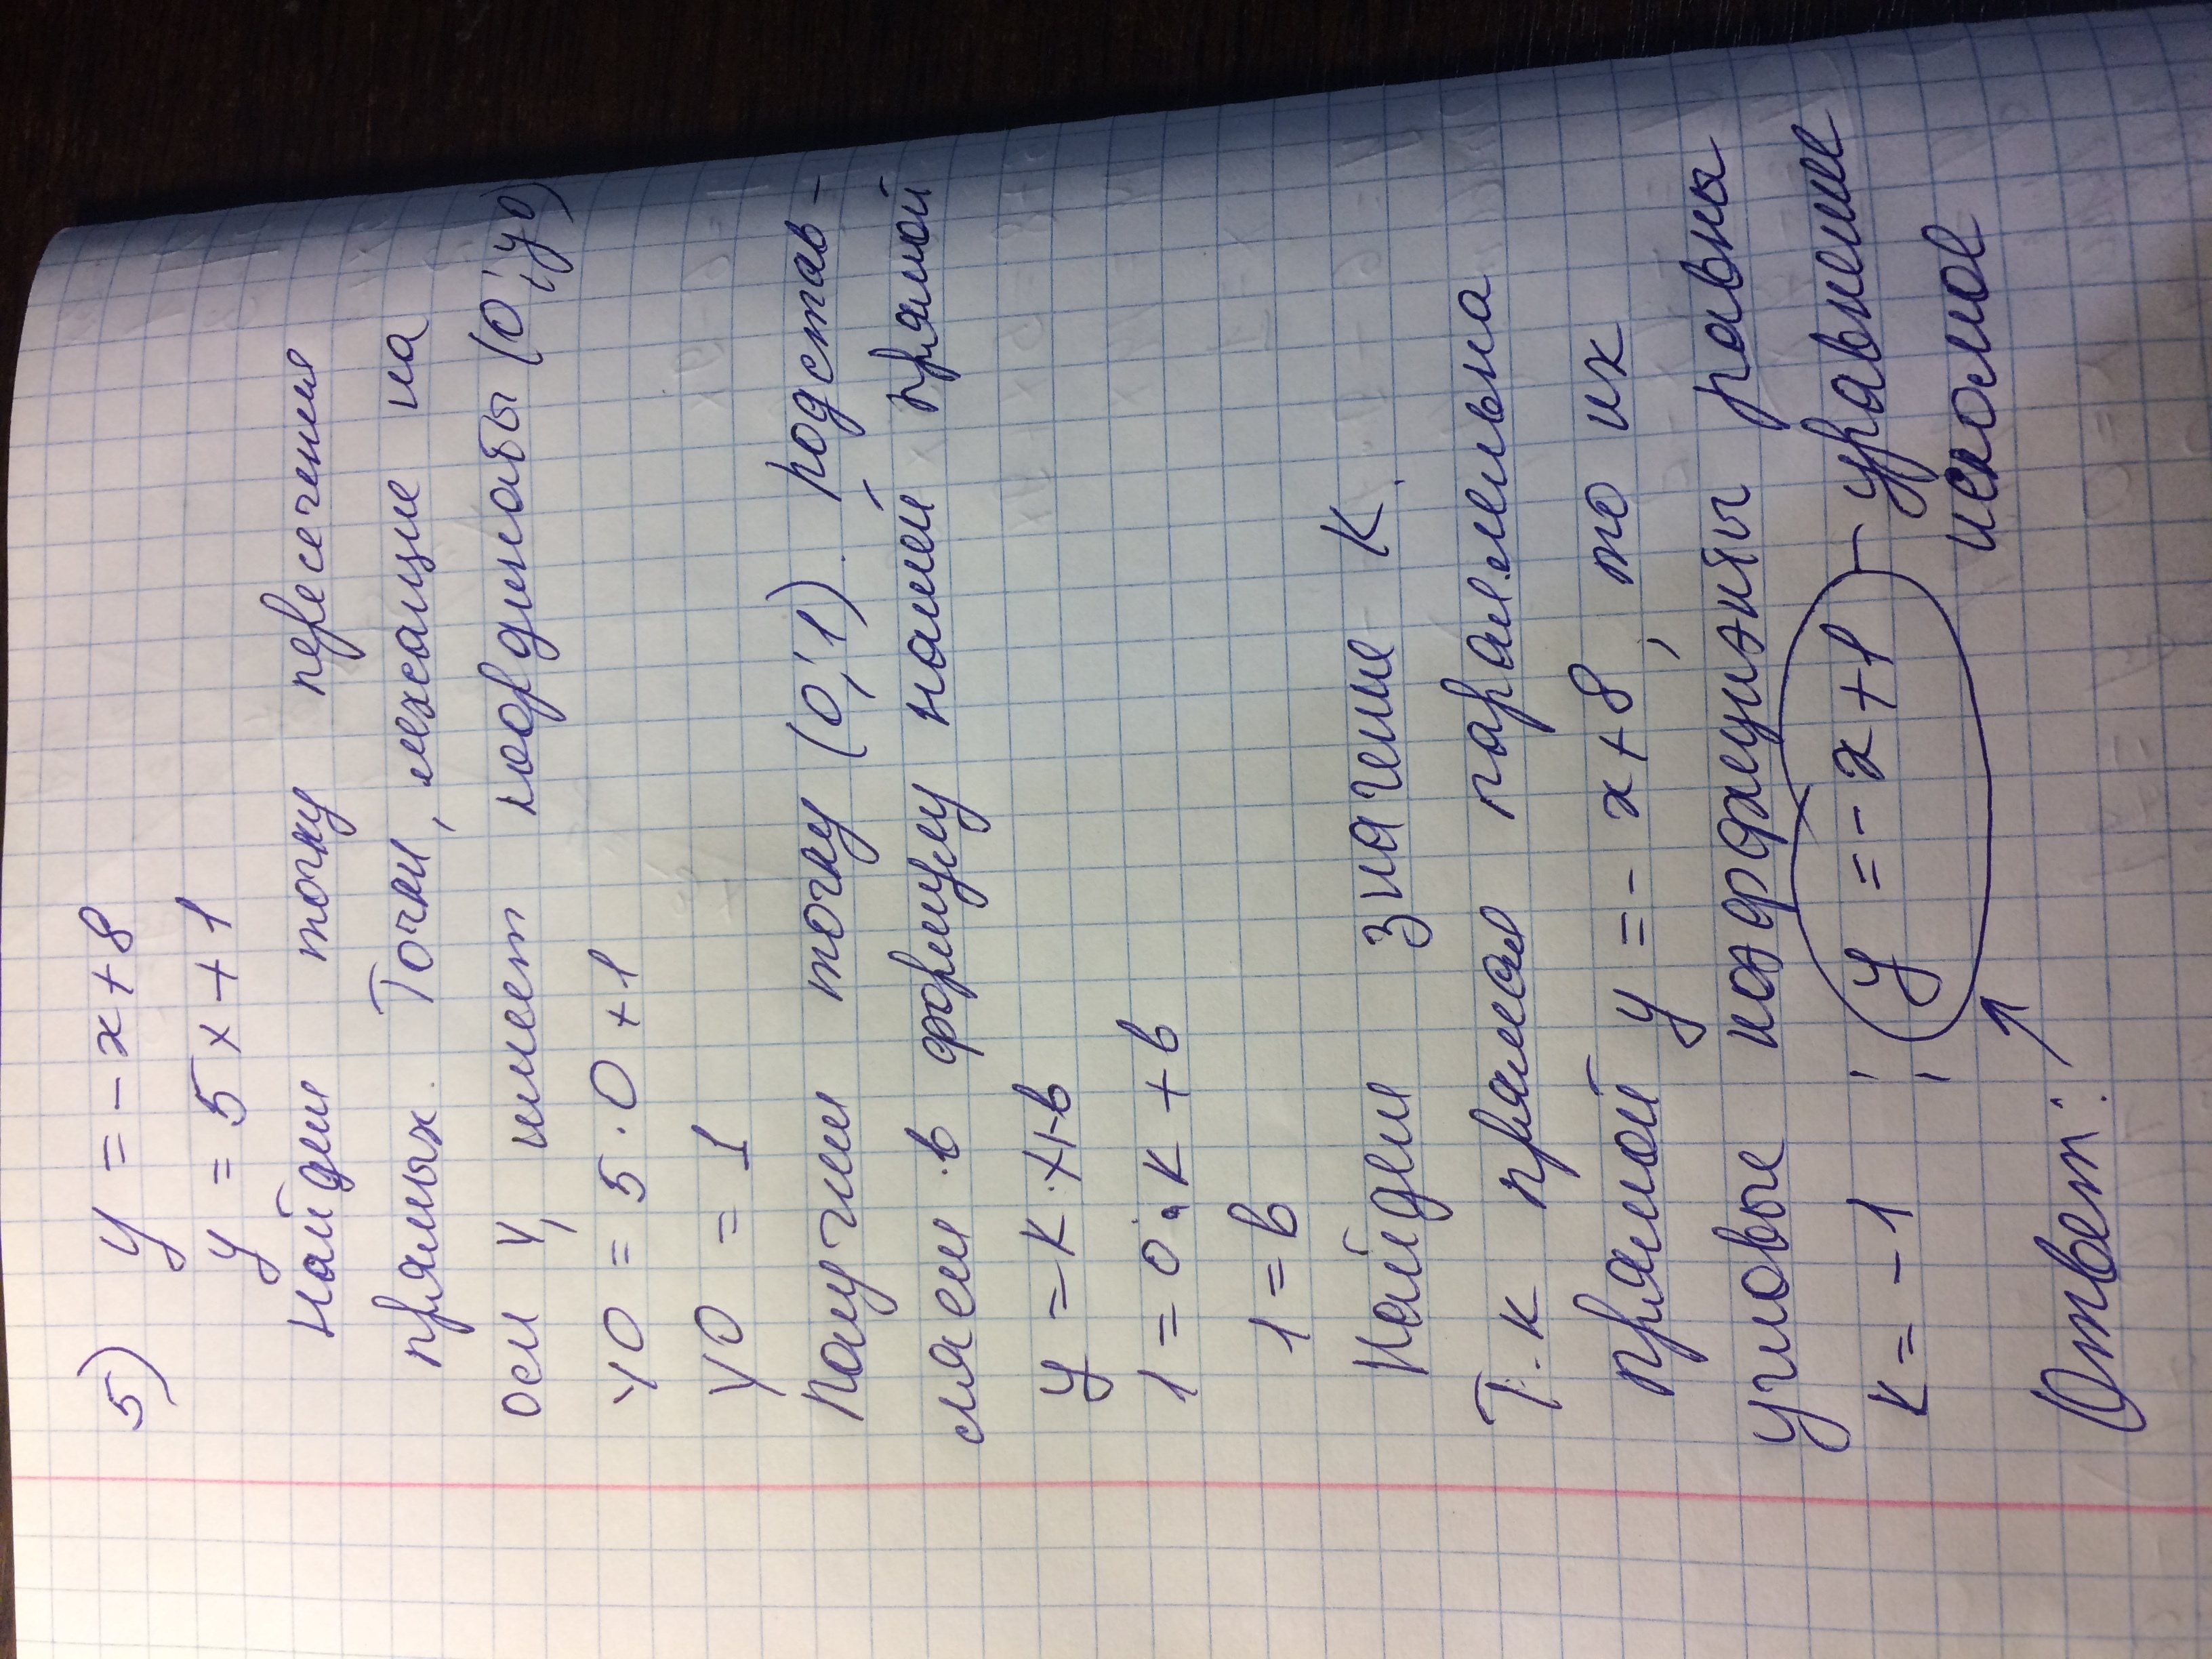 5) y = - x + 8
y = 5x + 1
Найдем точку пересечения
прямых. Точки, лежащие на
оси y, имеет координаты (0; y0)
y0 = 5 · 0 + 1
y0 = 1
Получим точку (0; 1). Подстав-
ляем в формулу нашей прямой
y = к · x + в
1 = 0 · к + в
1 = в
Найдем значение к.
Т.к прямая параллельна
прямой y = - x + 8, то их
угловые коэффициэнты равны
к = - 1; y = - x + 1 - уравнение
искомое
Ответ: ↗